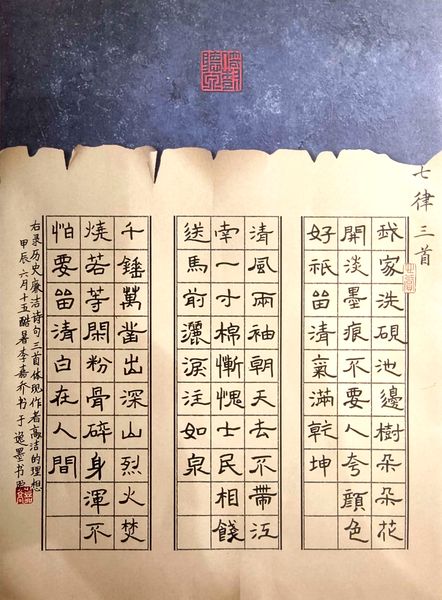 七律三首
我家洗硯池邊樹朵朵花
開淡墨痕不要人夸顔色
好祇留清氣滿乾坤
清風兩袖朝天去不帶江
南一寸棉慚愧士民相餞
送馬前灑淚注如泉
千錘萬凿出深山烈火焚
燒若等閑粉骨碎身渾不
怕要留清白在人間
右录历史廉洁诗句三首体现作者高洁的理想
甲辰六月十五酷暑李嘉乔书于逸墨书